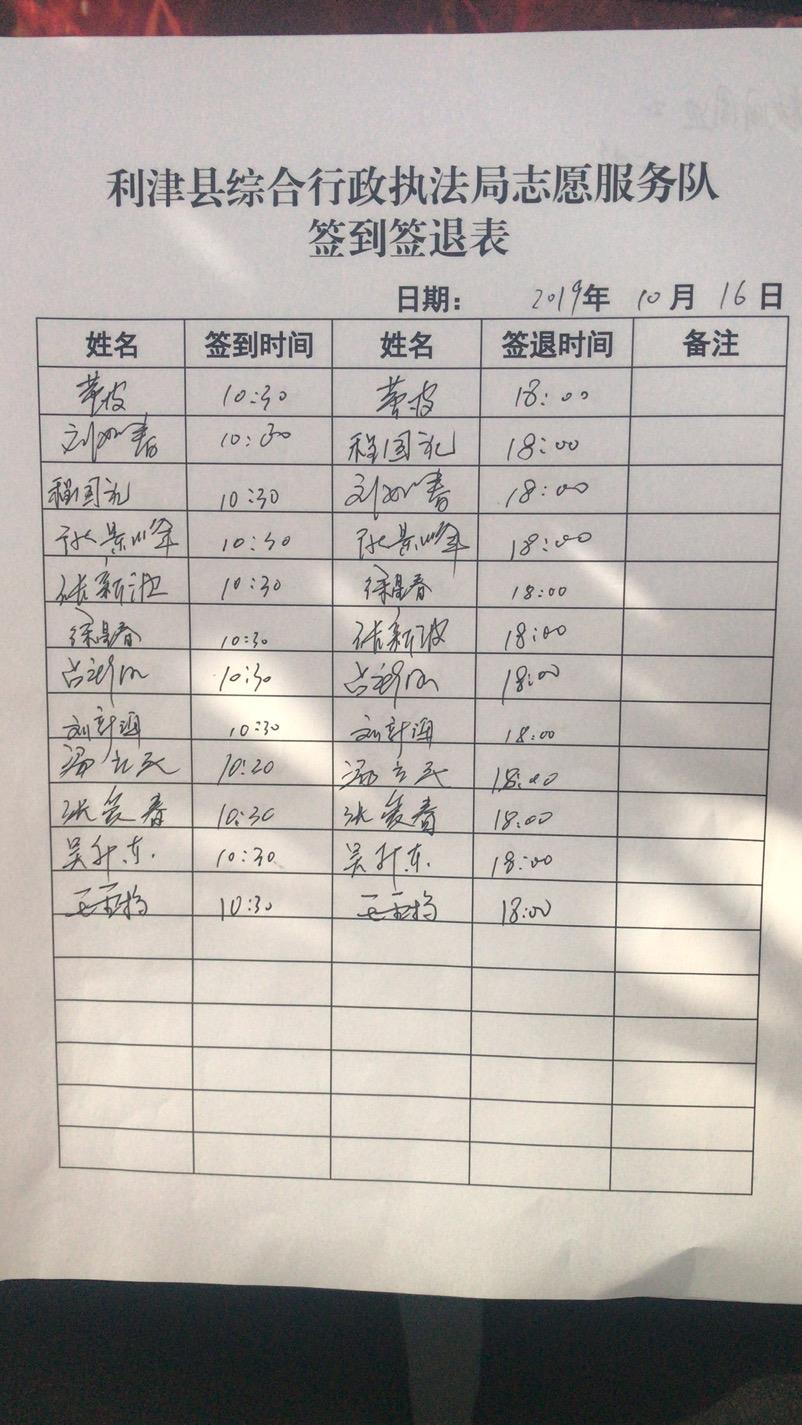 利津县综合行政执法局志愿服务队
签到签退表
日期: 2019年 10月 16日
姓名 签到时间 姓名 签退时间 备注
10:30 18:00
10:30 程国礼 18:00
程国礼 10:30 18:00
张景峰 10:30 张景峰 18:00
张新波 10:30 徐晶春 18:00
徐晶春 10:30 张新波 18:00
10:30 18:00
刘新海 10:30 刘新海 18:00
10:20 18:00
张爱春 10:30 张爱春 18:00
吴升东 10:30 吴升东 18:00
10:30 18:00